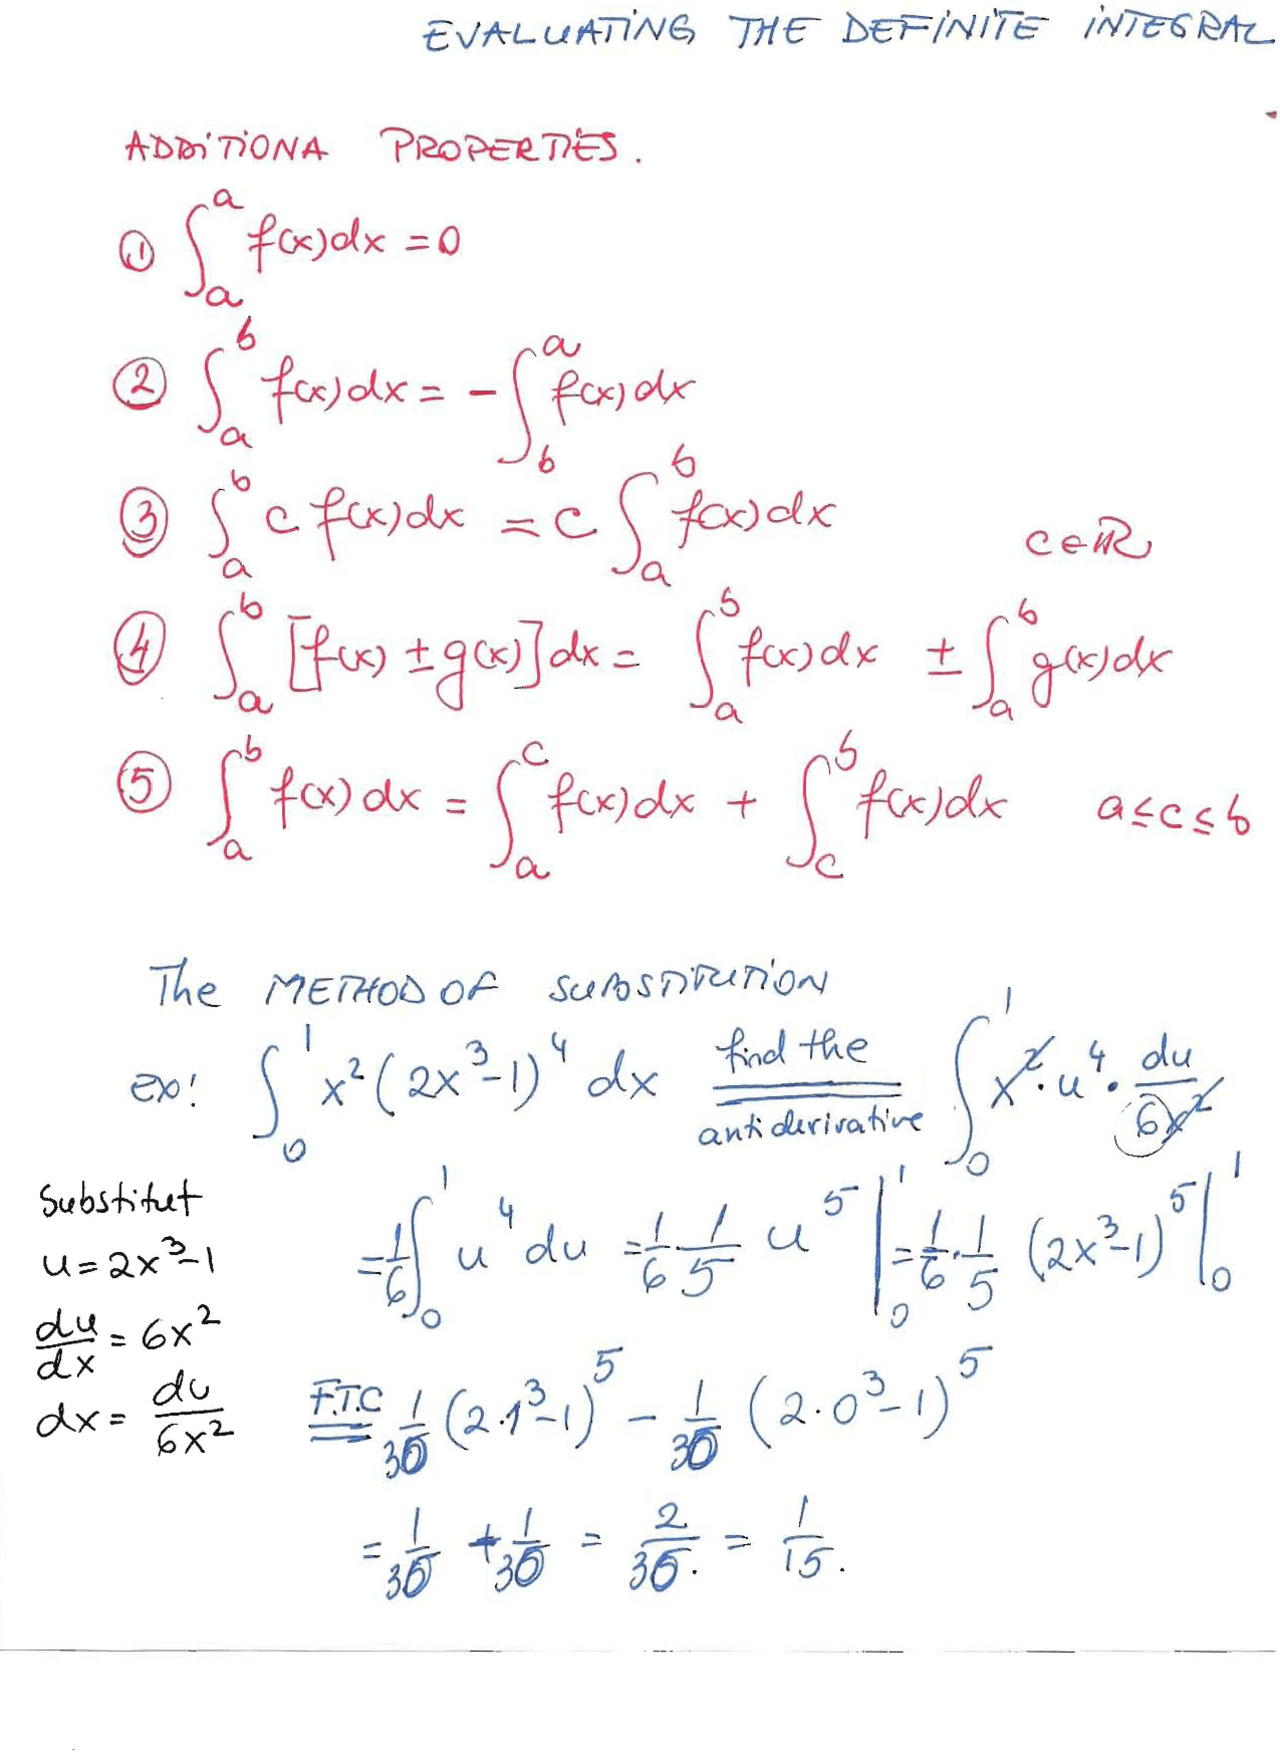 EVALUATING THE DEFINITE INTEGRAL
ADDITIONA PROPERTIES.
① ∫_a^a f(x)dx = 0
② ∫_a^b f(x)dx = - ∫_b^a f(x)dx
③ ∫_a^b c f(x)dx = c ∫_a^b f(x)dx c∈ℝ
④ ∫_a^b [f(x) ± g(x)]dx = ∫_a^b f(x)dx ± ∫_a^b g(x)dx
⑤ ∫_a^b f(x)dx = ∫_a^c f(x)dx + ∫_c^b f(x)dx a≤c≤b
The METHOD OF SUBSTITUTION
ex! ∫_0^1 x²(2x³-1)⁴ dx find the antiderivative ∫_0^1 x²·u⁴·du/6x²
Substitut
u=2x³-1
du/dx = 6x²
dx = du/6x²
= 1/6 ∫_0^1 u⁴ du = 1/6·1/5 u⁵ |_0^1 = 1/6·1/5 (2x³-1)⁵ |_0^1
F.T.C = 1/30 (2·1³-1)⁵ - 1/30 (2·0³-1)⁵
= 1/30 + 1/30 = 2/30. = 1/15.